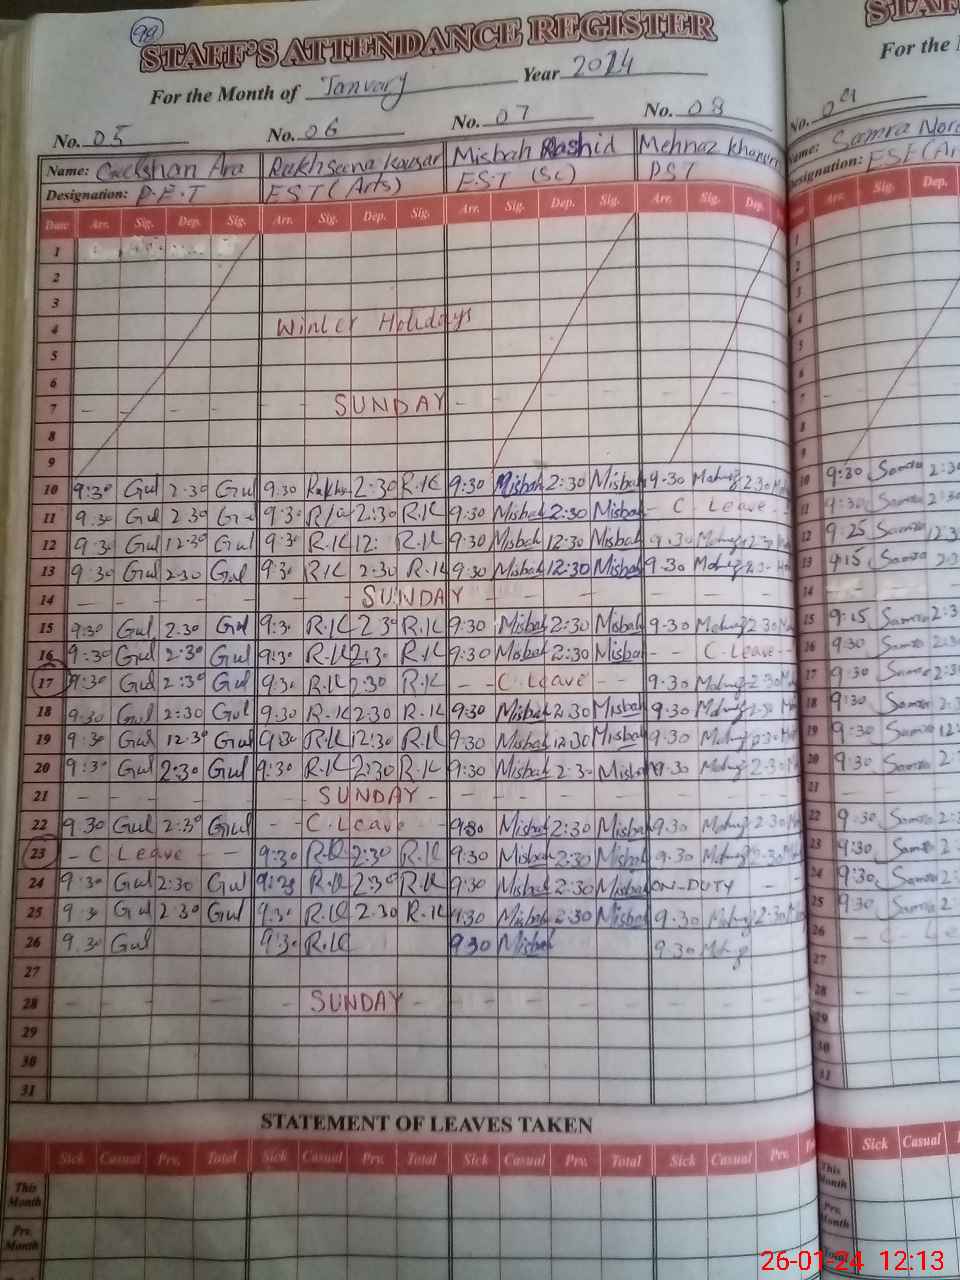 98
STAFF'S ATTENDANCE REGISTER
For the Month of January Year 2024
No. 05 No. 06 No. 07 No. 08
Name: Gulshan Ara Rukhsana Kousar Misbah Rashid Mehnaz Khanum
Designation: P.E.T EST (Arts) E.S.T (Sc) PST
Date Arr. Sig. Dep. Sig. Arr. Sig. Dep. Sig. Arr. Sig. Dep. Sig. Arr. Sig. Dep.
1
2
3
4 Winter Holidays
5
6
7 - SUNDAY -
8
9
10 9:30 Gul 2:30 Gul 9:30 2:30 R.K 9:30 Misbah 2:30 Misbah 9.30 2.30
11 9:30 Gul 2:30 Gul 9:30 2:30 R.K 9:30 Misbah 2:30 Misbah - C Leave -
12 9:30 Gul 12:30 Gul 9:30 R.K 12: R.K 9:30 Misbah 12:30 Misbah 9.30
13 9:30 Gul 2:30 Gul 9:30 R.K 2:30 R.K 9:30 Misbah 12:30 Misbah 9.30 2.30
14 - - - - SUNDAY - - -
15 9:30 Gul 2:30 Gul 9:3 R.K 2:30 R.K 9:30 Misbah 2:30 Misbah 9.30 2.30
16 9:30 Gul 2:30 Gul 9:30 R.K 2:30 R.K 9:30 Misbah 2:30 Misbah - - C. Leave -
17 9:30 Gul 2:30 Gul 9:30 R.K 2:30 R.K - - C. Leave - - 9.30 2.30
18 9:30 Gul 2:30 Gul 9:30 R.K 2:30 R.K 9:30 Misbah 2:30 Misbah 9.30
19 9:30 Gul 12:30 Gul 9:30 R.K 12:30 R.K 9:30 Misbah 12:30 Misbah 9.30
20 9:30 Gul 2:30 Gul 9:30 R.K 2:30 R.K 9:30 Misbah 2:30 Misbah 9.30 2.30
21 - - - SUNDAY - - -
22 9:30 Gul 2:30 Gul - - C. Leave - 9:30 Misbah 2:30 Misbah 9.30 2.30
23 - C Leave - - 9:30 2:30 9:30 Misbah 2:30 Misbah 9.30 2.30
24 9:30 Gul 2:30 Gul 2:30 9:30 Misbah 2:30 Misbah ON-DUTY - -
25 9:30 Gul 2:30 Gul 9:30 2:30 R.K 9:30 Misbah 2:30 Misbah 9.30 2.30
26 9:30 Gul 9:30 R.K 9:30 Misbah 9.30
27
28 - - - SUNDAY - - -
29
30
31
STATEMENT OF LEAVES TAKEN
Sick Casual Prv. Total Sick Casual Prv. Total Sick Casual Prv. Total Sick Casual Prv.
This Month
Prv. Month
For the
No. 09
Name: Samra
Designation: ESE
Arr. Sig. Dep.
1
2
3
4
5
6
7
8
9
10 9:30 2:30
11 9:30 2:30
12 9:25 12:30
13 9:15
14
15 9:15 2:3
16 9:30 2:30
17 9:30 2:30
18 9:30
19 9:30 12
20 9:30
21
22 9:30
23 9:30
24 9:30
25 9:30
26 - C- Le
27
28
29
30
31
Sick Casual
This Month
Prv. Month
Total
26-01-24 12:13